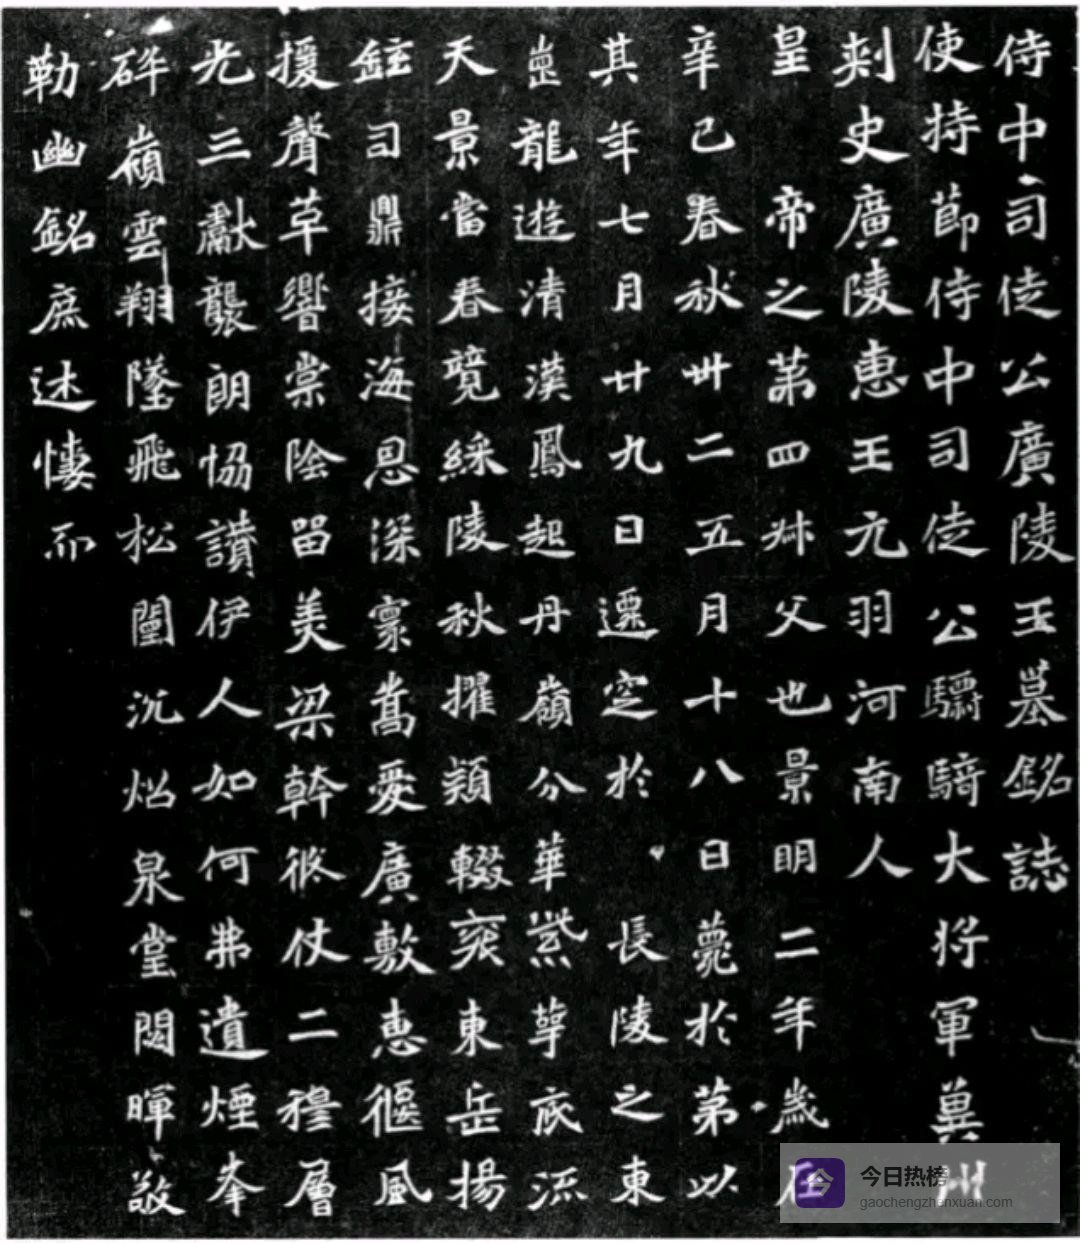 侍中司徒公廣陵王墓銘誌
使持節侍中司徒公驃騎大將軍冀州
刺史廣陵惠王元羽河南人
皇帝之第四叔父也景明二年歲在
辛巳春秋卅二五月十八日薨於第以
其年七月廿九日遷窆於長陵之東
崗龍遊清漢鳳起丹嶺分華紫萼底流
天景當春競綵陵秋擢穎輟袞東岳揚
鉉司鼎接海恩深寰嵩愛廣敷惠偃風
援聲草響棠陰留美梁幹徐仗二穆層
光三獻襲朗協讚伊人如何弗遺煙峯
碎嶺雲翔墜飛松闈沉焰泉堂閟暉敬
勒幽銘庶述悽而
今日热榜
gaochengzhenxuan.com